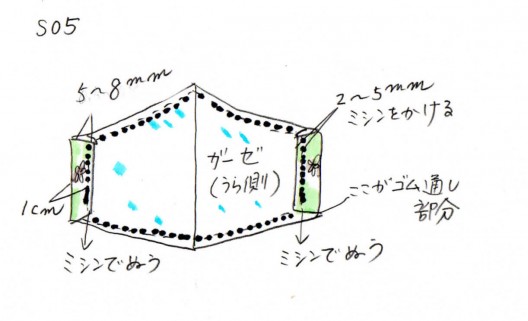 S05
5~8mm
2~5mm
ミシンをかける
ガーゼ
(うら側)
1cm
ここがゴム通し
部分
ミシンでぬう
ミシンでぬう